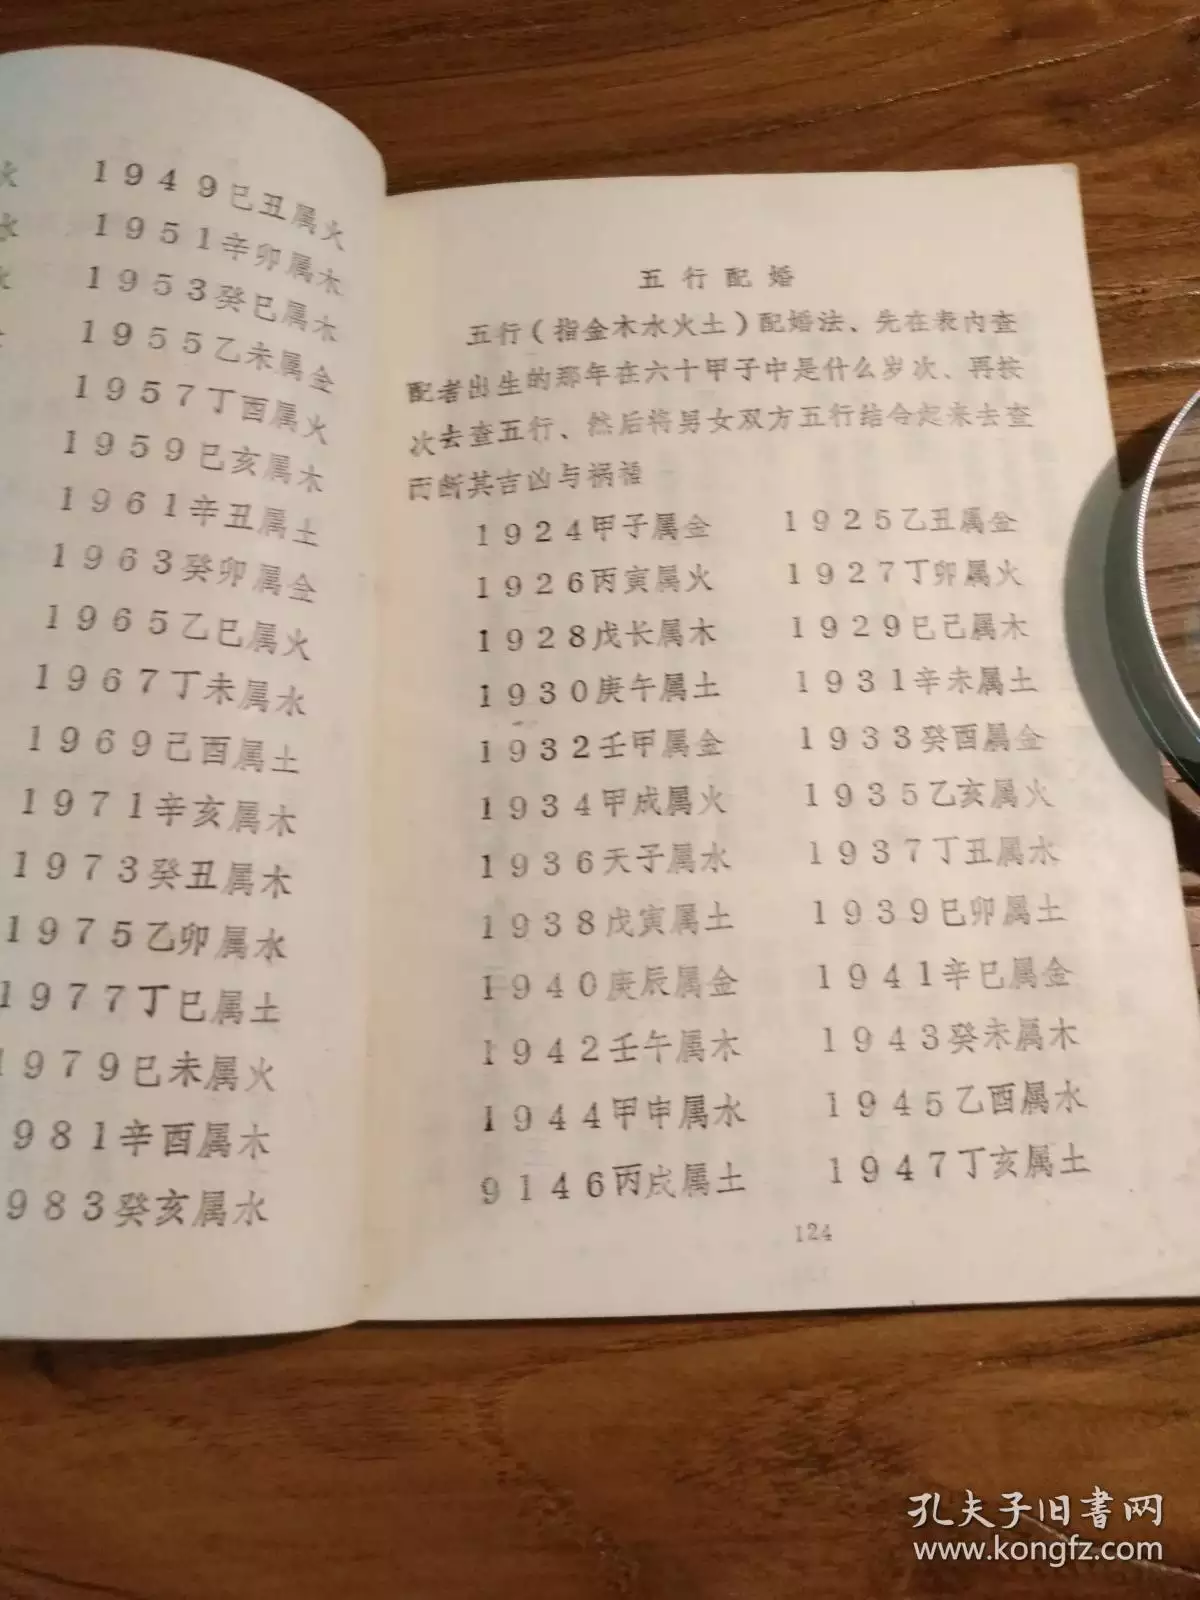 火
水
水
1949巳丑属火
1951辛卯属木
1953癸巳属木
1955乙未属金
1957丁酉属火
1959巳亥属木
1961辛丑属土
1963癸卯属金
1965乙巳属火
1967丁未属水
1969己酉属土
1971辛亥属木
1973癸丑属木
1975乙卯属水
1977丁巳属土
1979巳未属火
981辛酉属木
983癸亥属水
五行配婚
五行(指金木水火土)配婚法、先在表内查
配者出生的那年在六十甲子中是什么岁次、再按
次去查五行、然后将男女双方五行结合起来去查
而断其吉凶与祸福
1924甲子属金 1925乙丑属金
1926丙寅属火 1927丁卯属火
1928戊长属木 1929巳己属木
1930庚午属土 1931辛未属土
1932壬甲属金 1933癸酉属金
1934甲成属火 1935乙亥属火
1936天子属水 1937丁丑属水
1938戊寅属土 1939巳卯属土
1940庚辰属金 1941辛巳属金
1942壬午属木 1943癸未属木
1944甲申属水 1945乙酉属水
9146丙戌属土 1947丁亥属土
124
孔夫子旧书网
www.kongfz.com